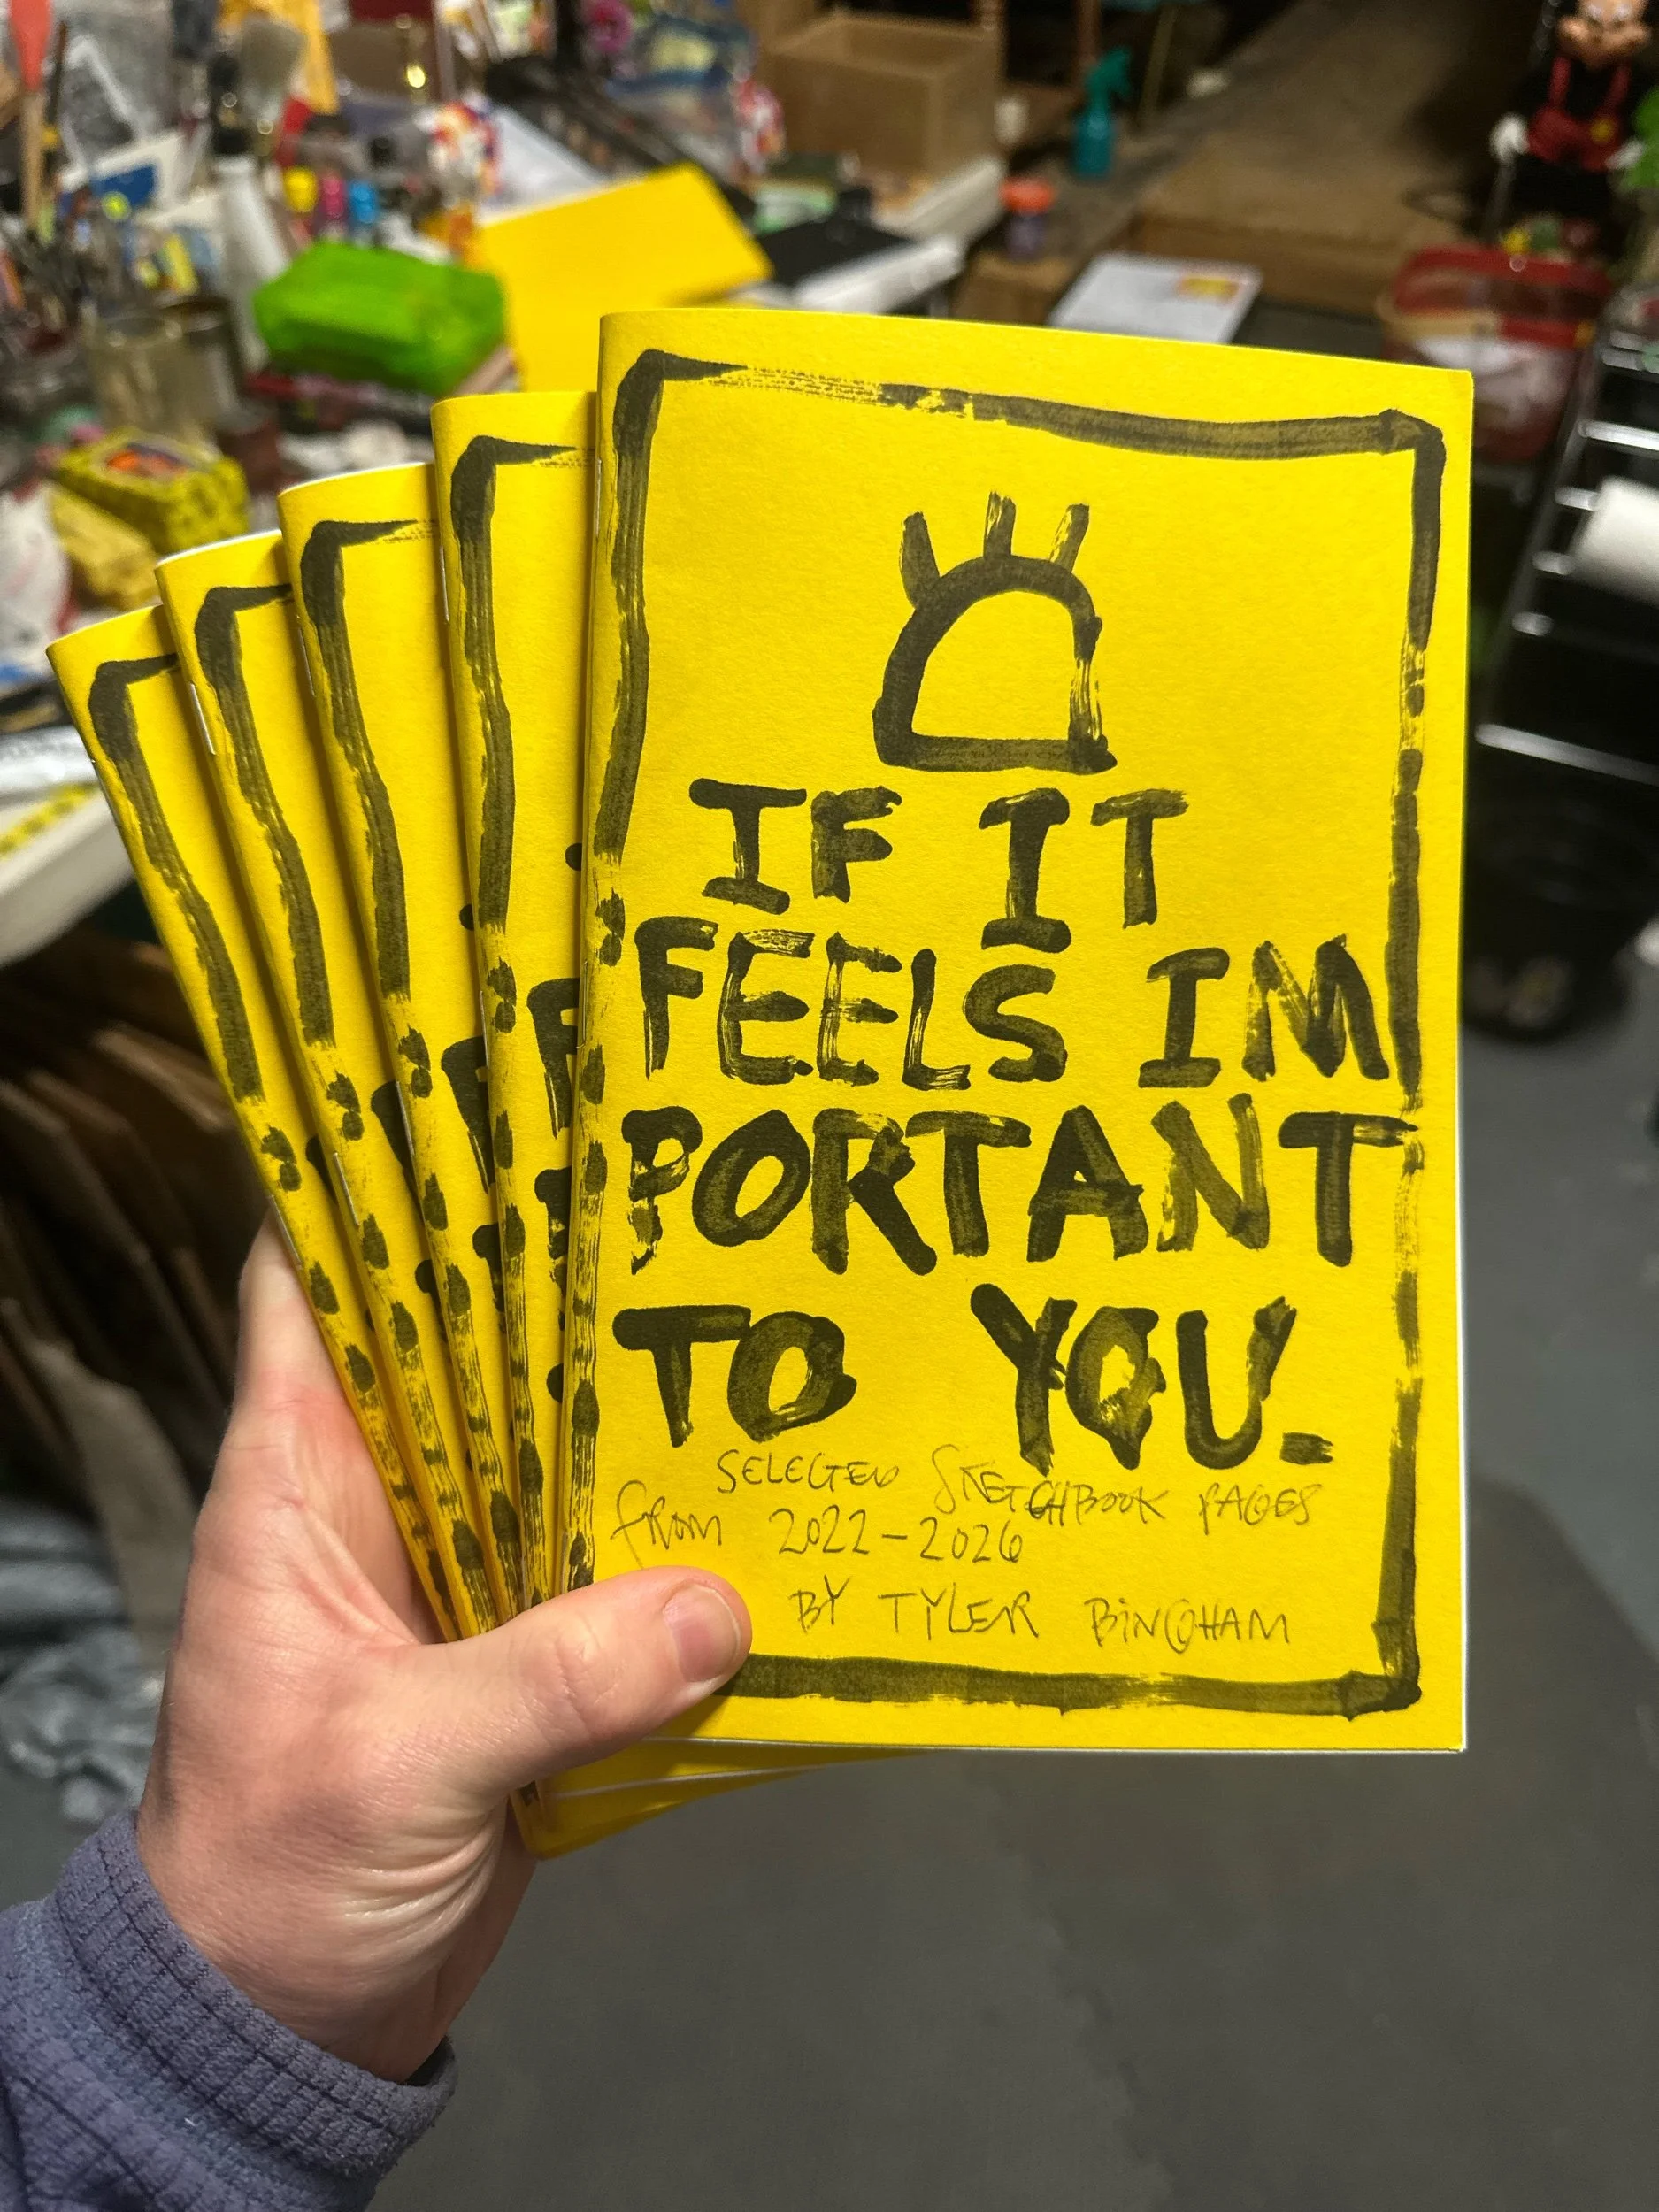 IF IT
FEELS IM
PORTANT
TO YOU.
SELECTED SKETCHBOOK PAGES
from 2022-2026
BY TYLER BINGHAM